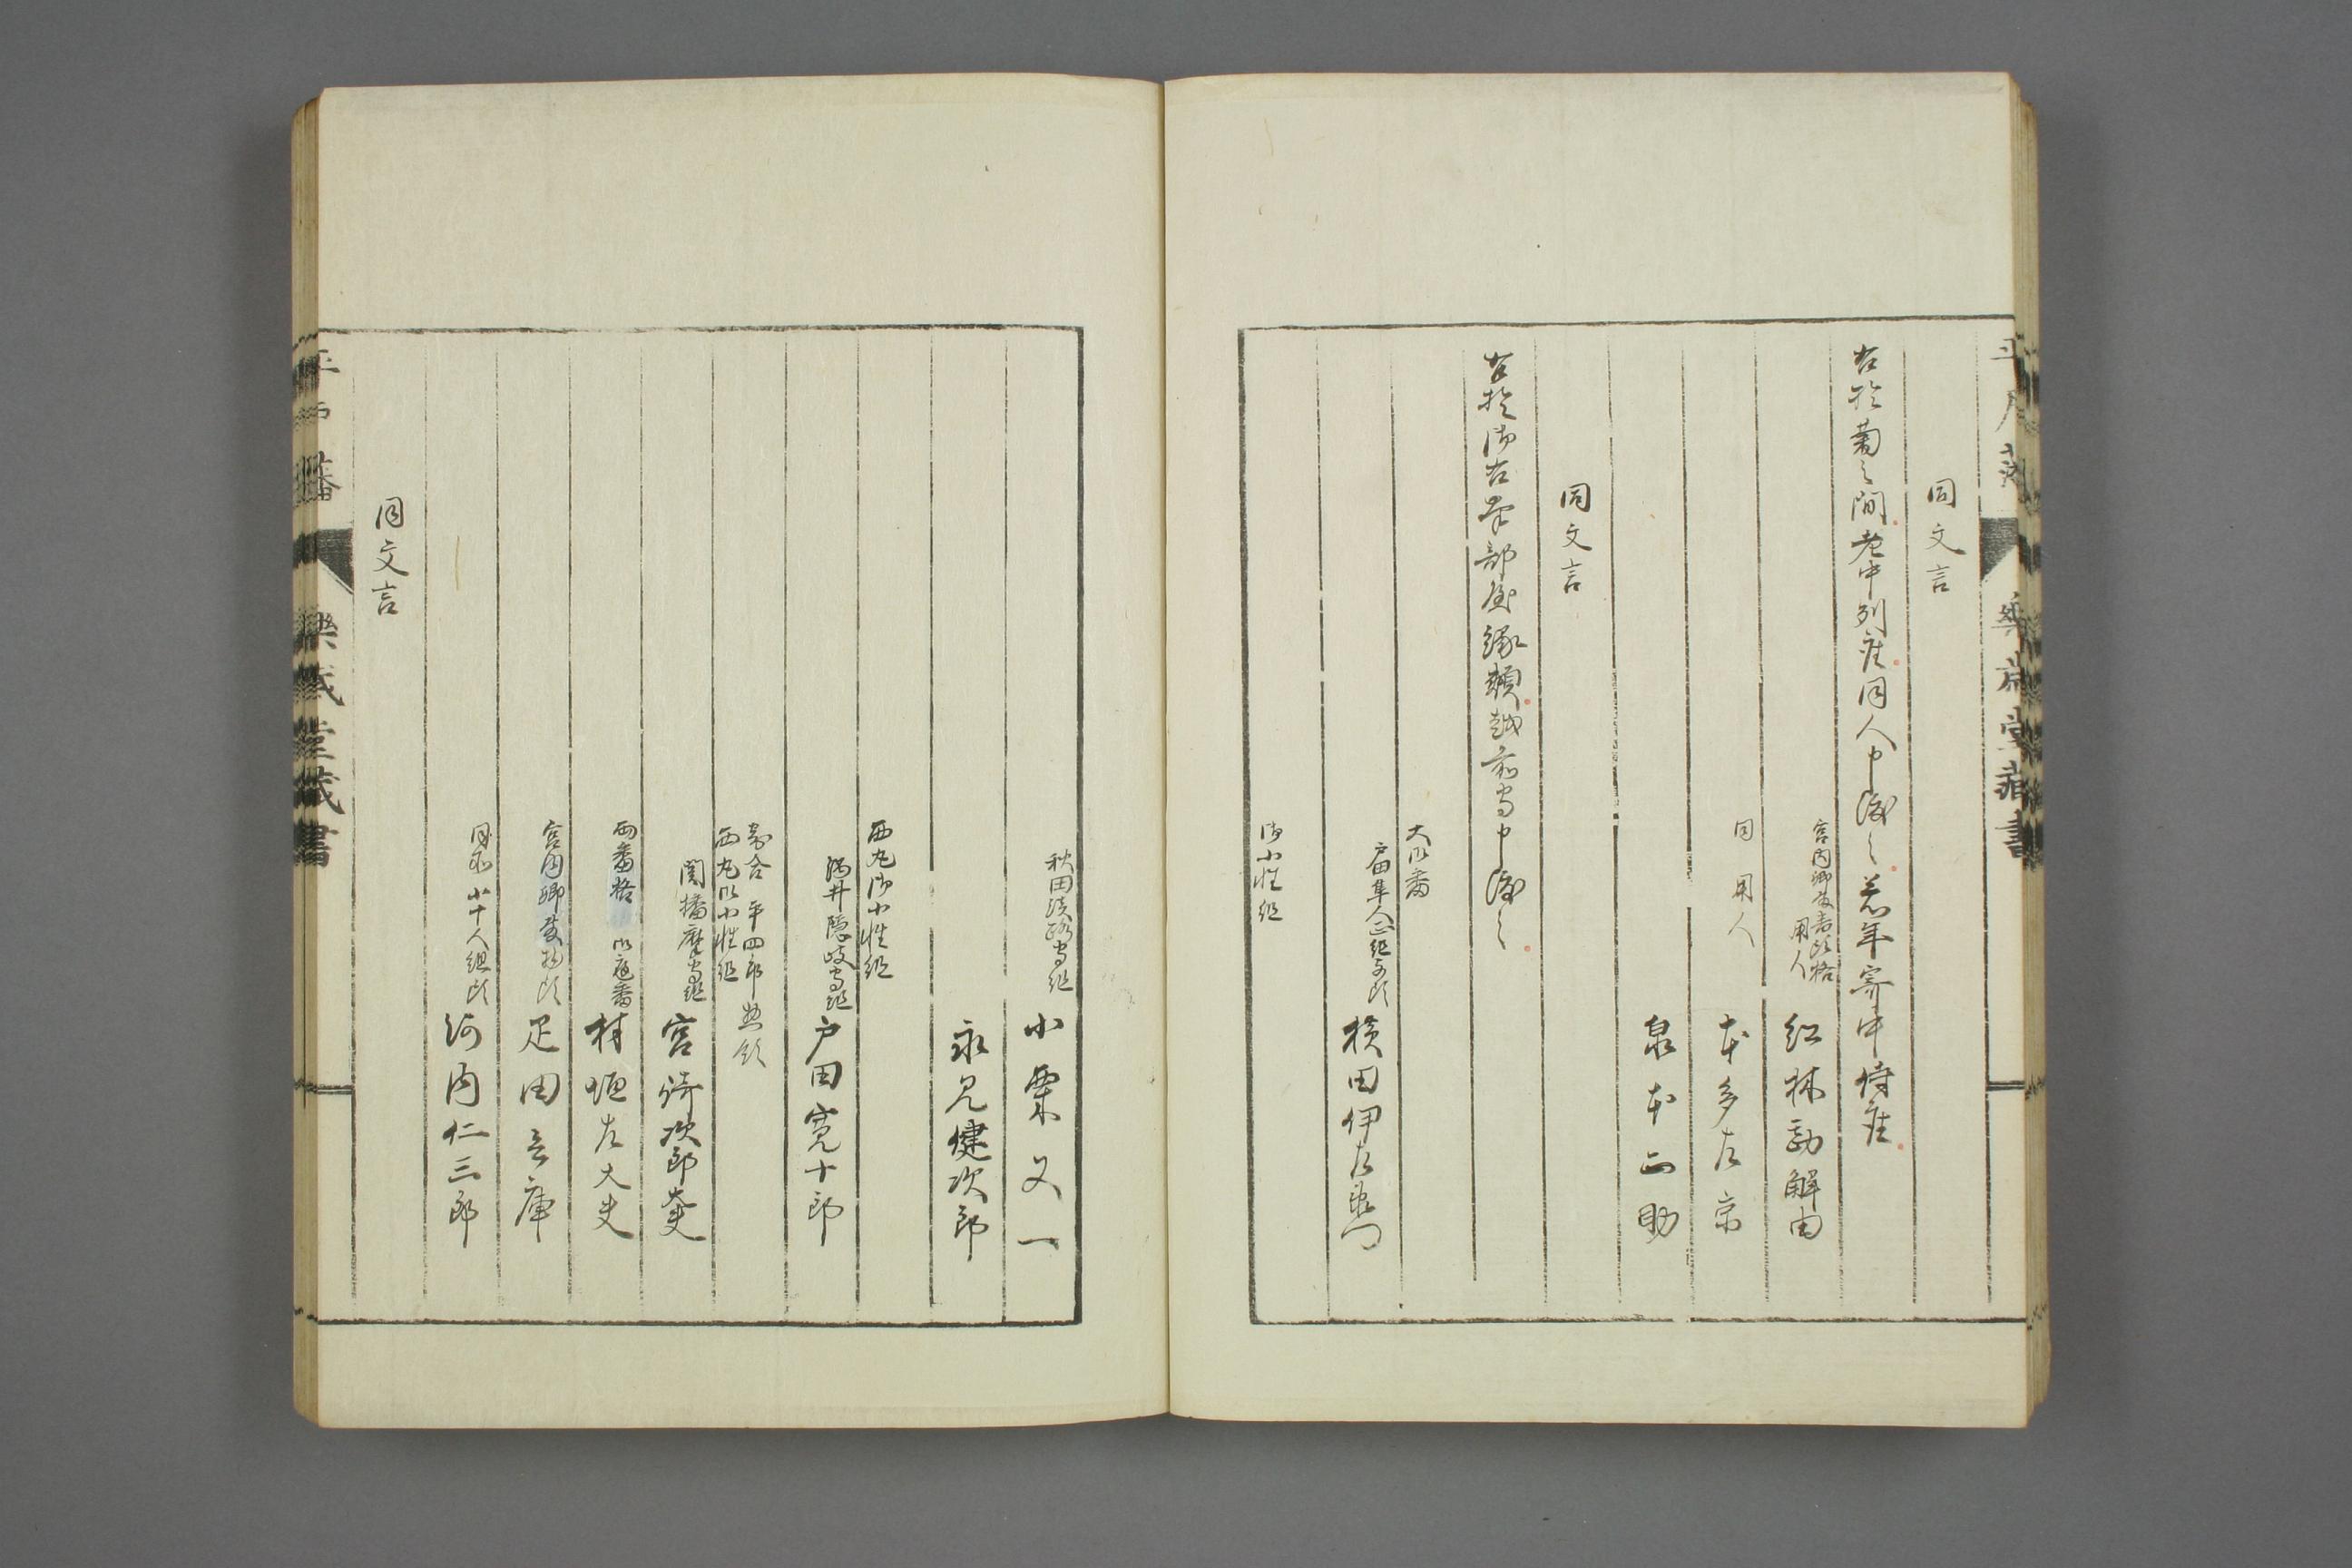 同文言
右於菊之間老中列座同人申渡之若年寄中侍座
宮内卿殿番頭格
用人
紅林勘解由
同 用人
本多左京
泉本正助
同文言
右於御右筆部屋縁頬越前守申渡之
大御番
戸田隼人正組与頭
横田伊左衛門
御小性組
秋田淡路守組
小栗又一
永見健次郎
西丸御小性組
酒井隠岐守組
戸田寛十郎
寄合 平四郎惣領
西丸御小性組
関播磨守組
宮崎次郎大夫
両番格 御庭番
村垣左大夫
宮内卿殿物頭
疋田兵庫
同所小十人組頭
河内仁三郎
同文言
樂歳堂藏書